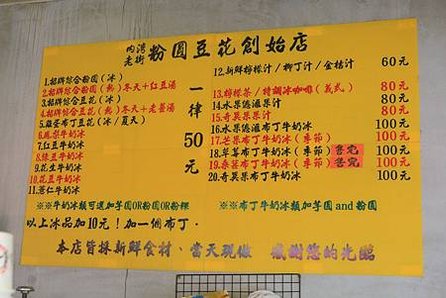 內灣老街 粉圓豆花創始店
1.招牌綜合粉圓（冰）
2.招牌綜合粉圓（熱）冬天+紅豆湯
3.招牌綜合豆花（冰）
4.招牌綜合豆花（熱）冬天+老薑湯
5.雞蛋布丁豆花（冰／夏天）
6.鳳梨牛奶冰
7.紅豆牛奶冰
8.綠豆牛奶冰
9.花生牛奶冰
10.花豆牛奶冰
11.薏仁牛奶冰
一律50元
12.新鮮檸檬汁／柳丁汁／金桔汁 60元
13.檸檬茶／特調冰咖啡（義式） 80元
14.水果德滋果汁 80元
15.奇異果果汁 80元
16.水果德滋布丁牛奶冰 100元
17.芒果布丁牛奶冰（季節） 100元
18.草莓布丁牛奶冰（季節）售完 100元
19.香蕉布丁牛奶冰（季節）售完 100元
20.奇異果布丁牛奶冰 100元
※※牛奶冰類可選加芋圓OR粉圓OR粉粿
※※布丁牛奶冰類加芋圓and粉圓
以上冰品加10元！加一個布丁．
本店皆採新鮮食材、當天現做 感謝您的光臨